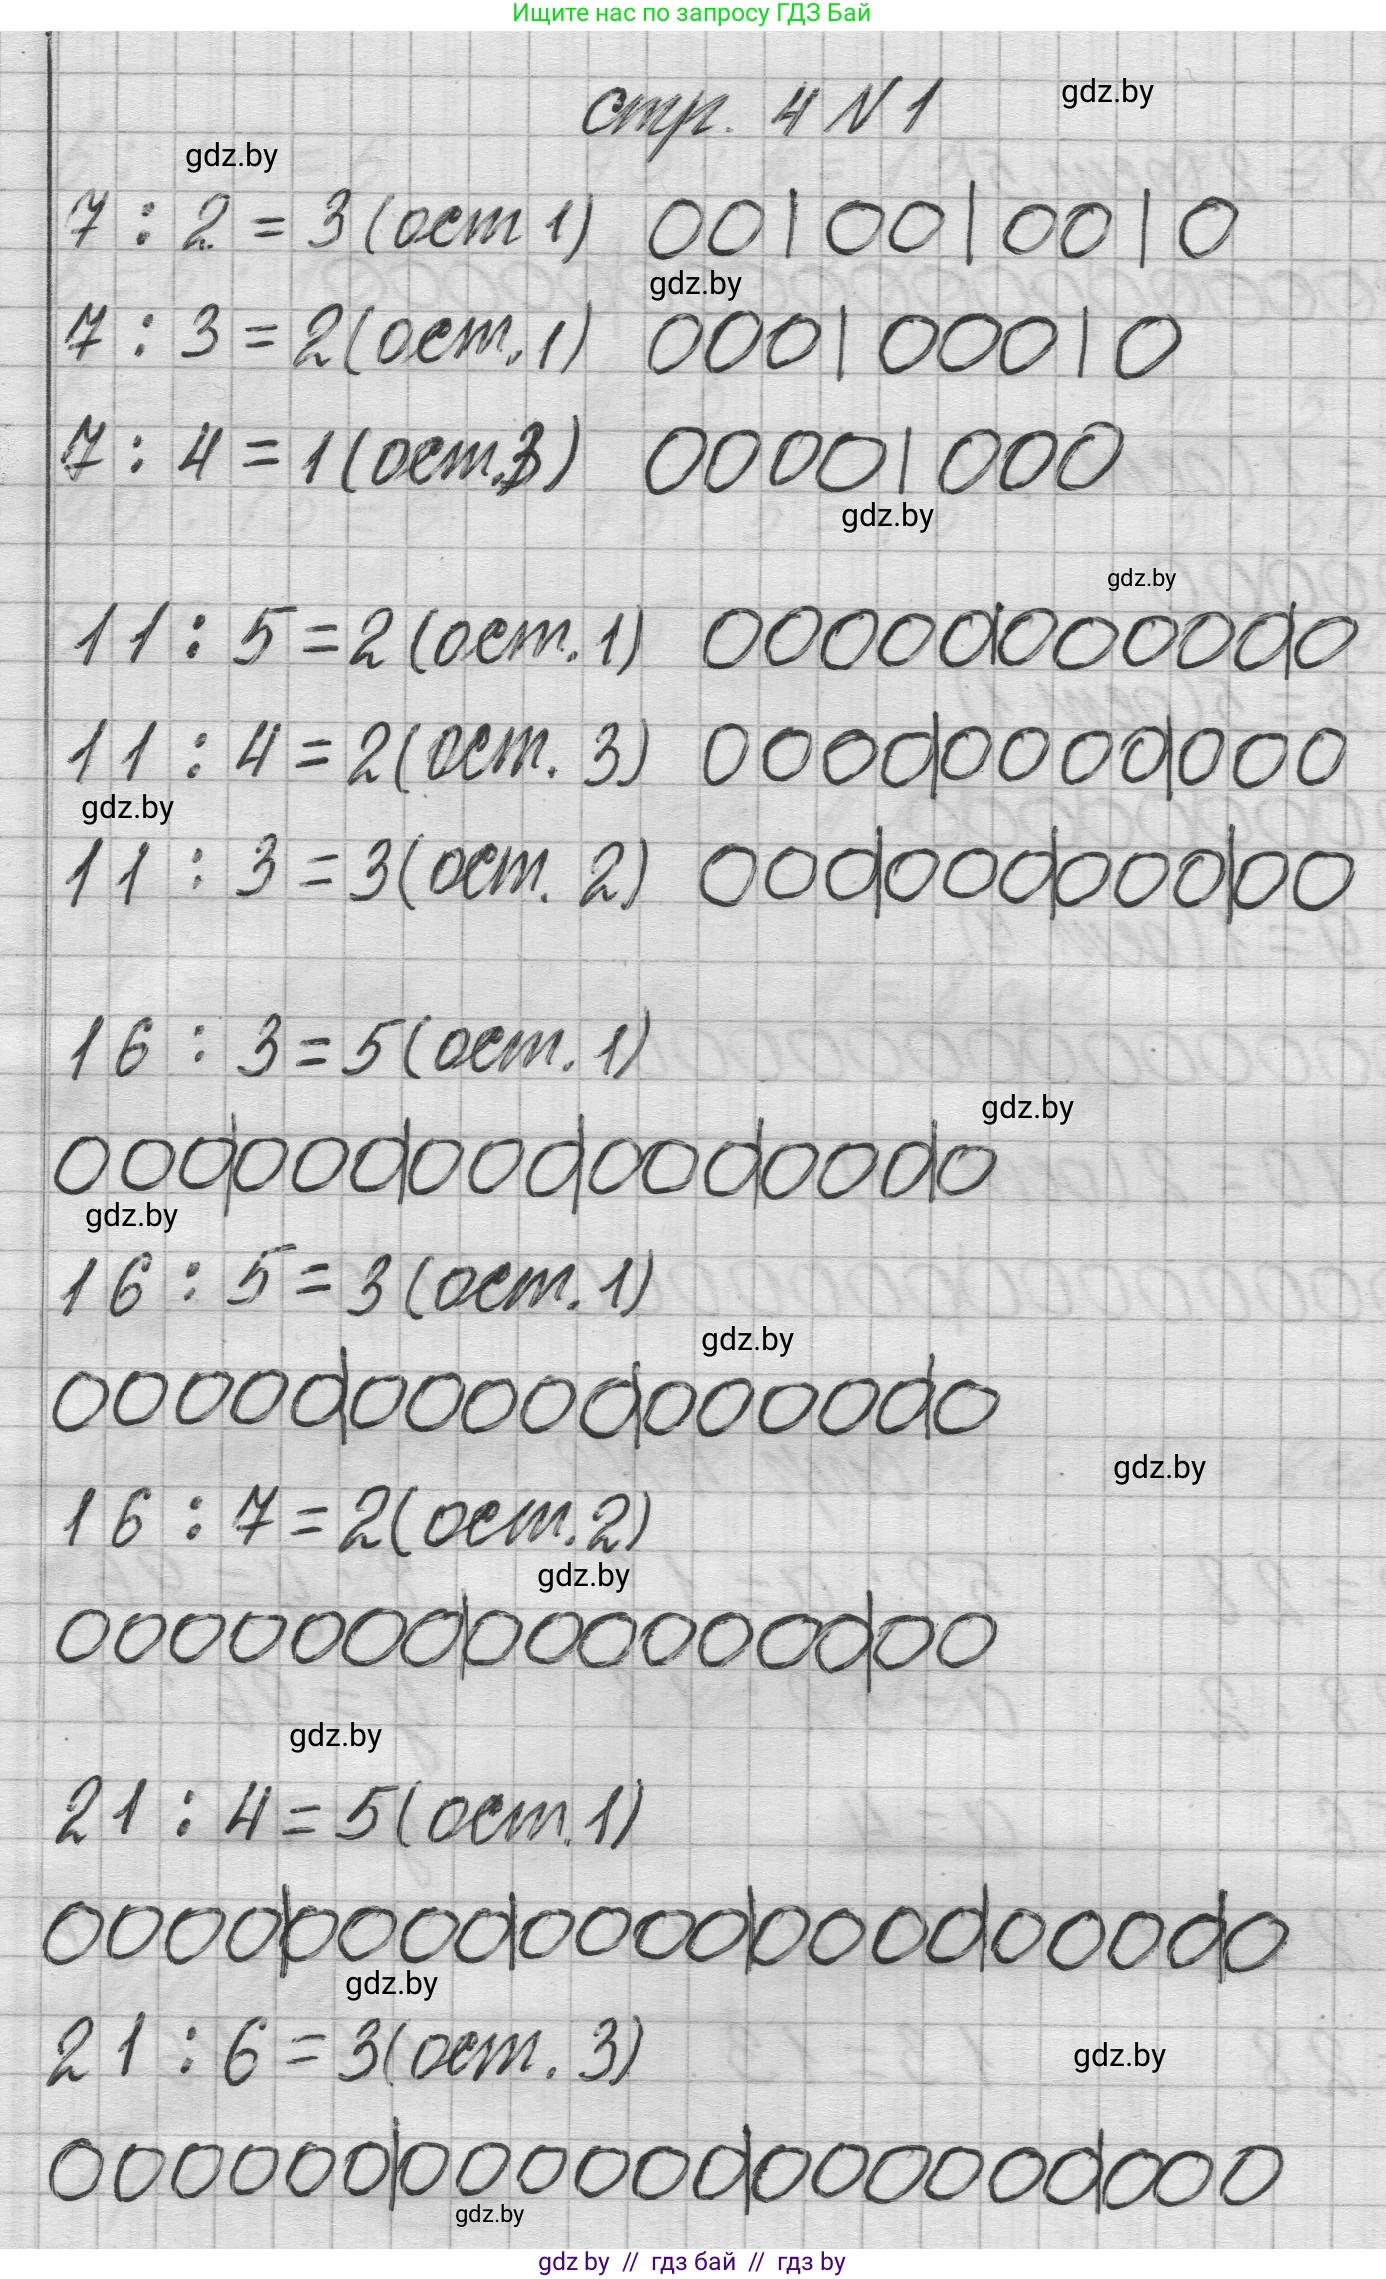 Ищите нас по запросу ГДЗ Бай
стр. 4 № 1
gdz.by
gdz.by
7 : 2 = 3 (ост 1) 00|00|00|0
gdz.by
7 : 3 = 2 (ост. 1) 000|000|0
7 : 4 = 1 (ост. 3) 0000|000
gdz.by
gdz.by
11 : 5 = 2 (ост. 1) 00000|00000|0
11 : 4 = 2 (ост. 3) 0000|0000|000
gdz.by
11 : 3 = 3 (ост. 2) 000|000|000|00
16 : 3 = 5 (ост. 1)
gdz.by
000|000|000|000|000|0
gdz.by
16 : 5 = 3 (ост. 1)
gdz.by
00000|00000|00000|0
gdz.by
16 : 7 = 2 (ост. 2)
gdz.by
0000000|0000000|00
gdz.by
21 : 4 = 5 (ост. 1)
0000|0000|0000|0000|0000|0
gdz.by
21 : 6 = 3 (ост. 3)
gdz.by
000000|000000|000000|000
gdz.by
gdz by // гдз бай // гдз by